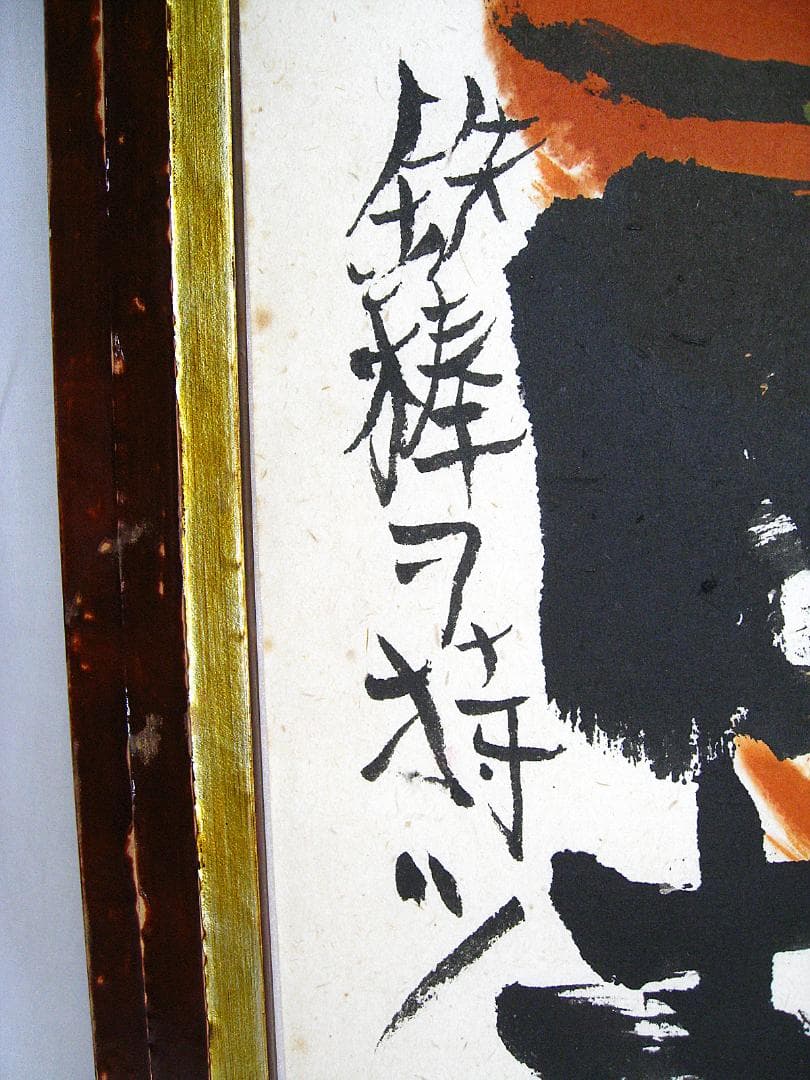 鉄棒ヲ持ツ